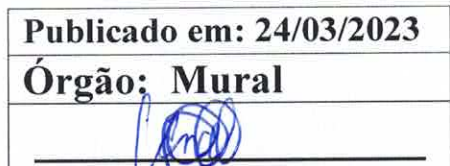 Publicado em: 24/03/2023
Órgão: Mural